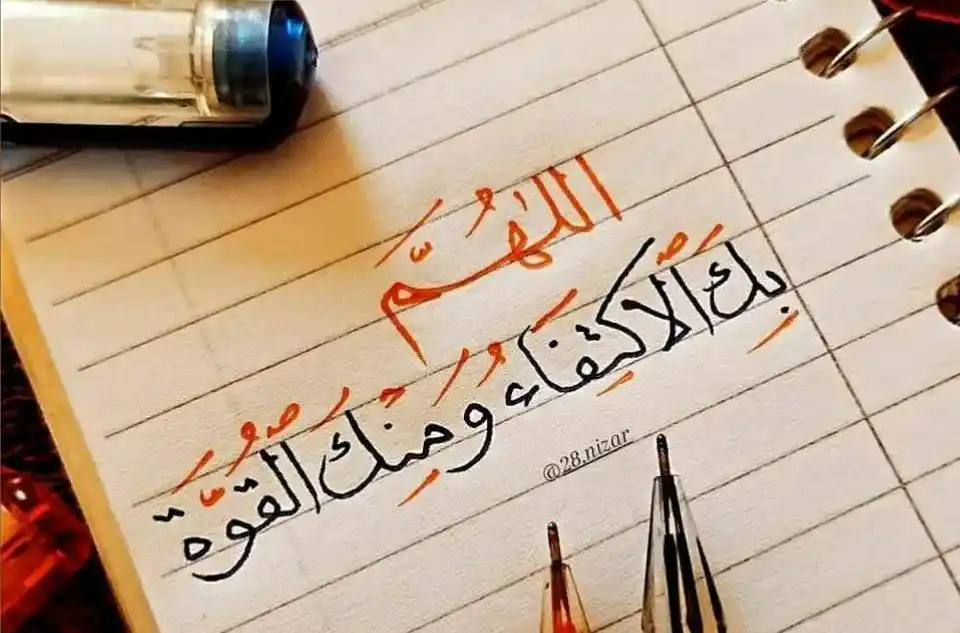 اللّٰهُمَّ
بِكَ ٱلاكتِفَاءُ
وَمِنكَ ٱلقُوَّة
@28.nizar